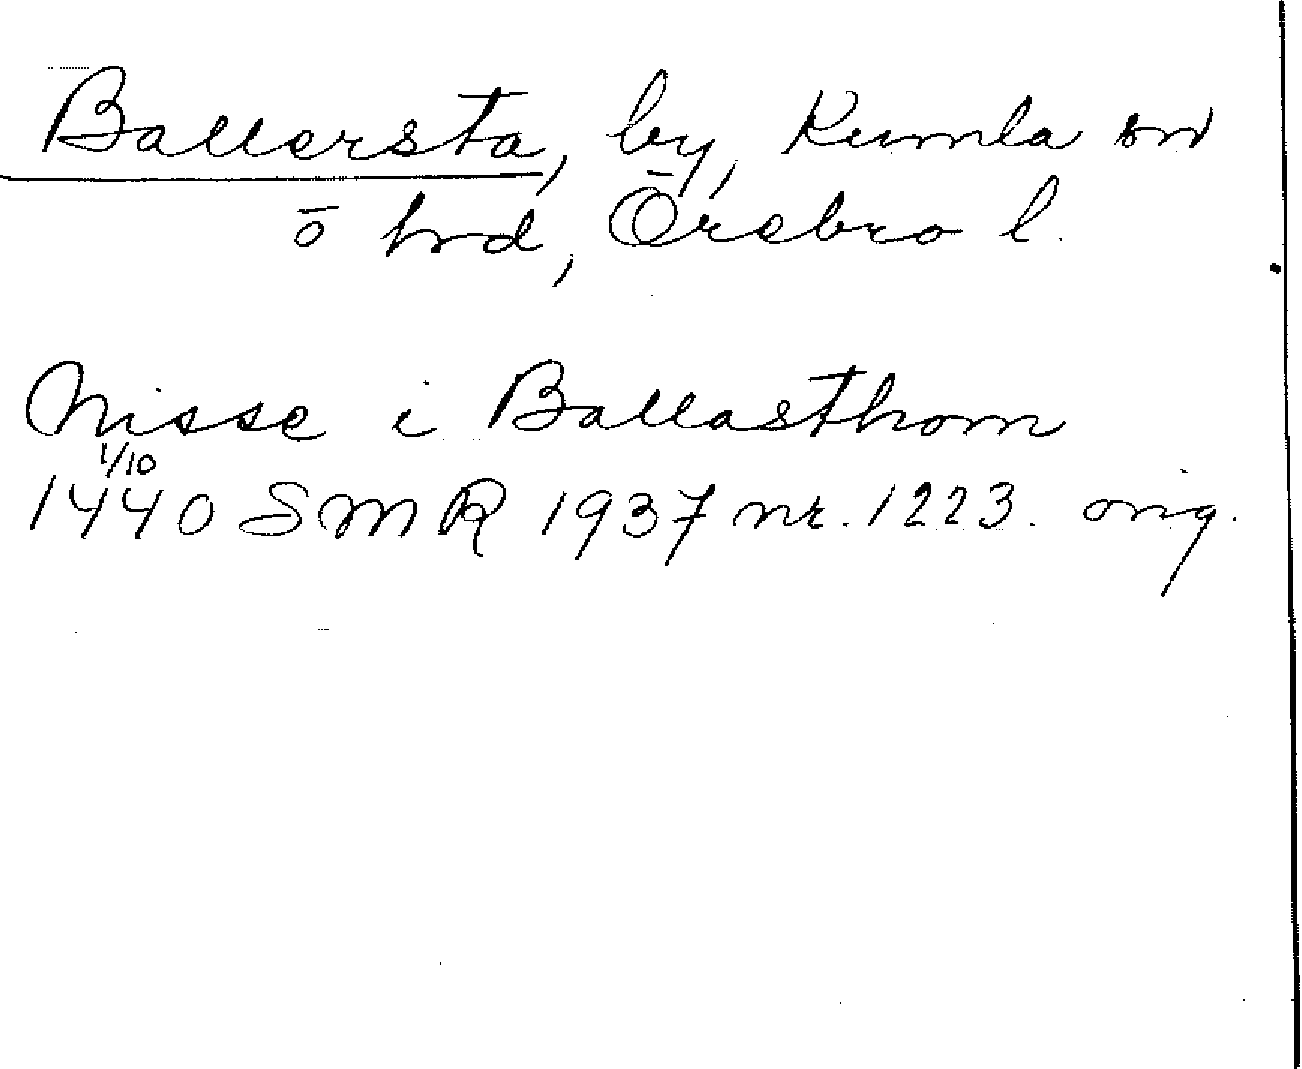 Ballersta, by, Kumla sn
ö hrd, Örebro l.
Nisse i Ballasthom
1/10
1440 SMR 1937 nr. 1223. orig.